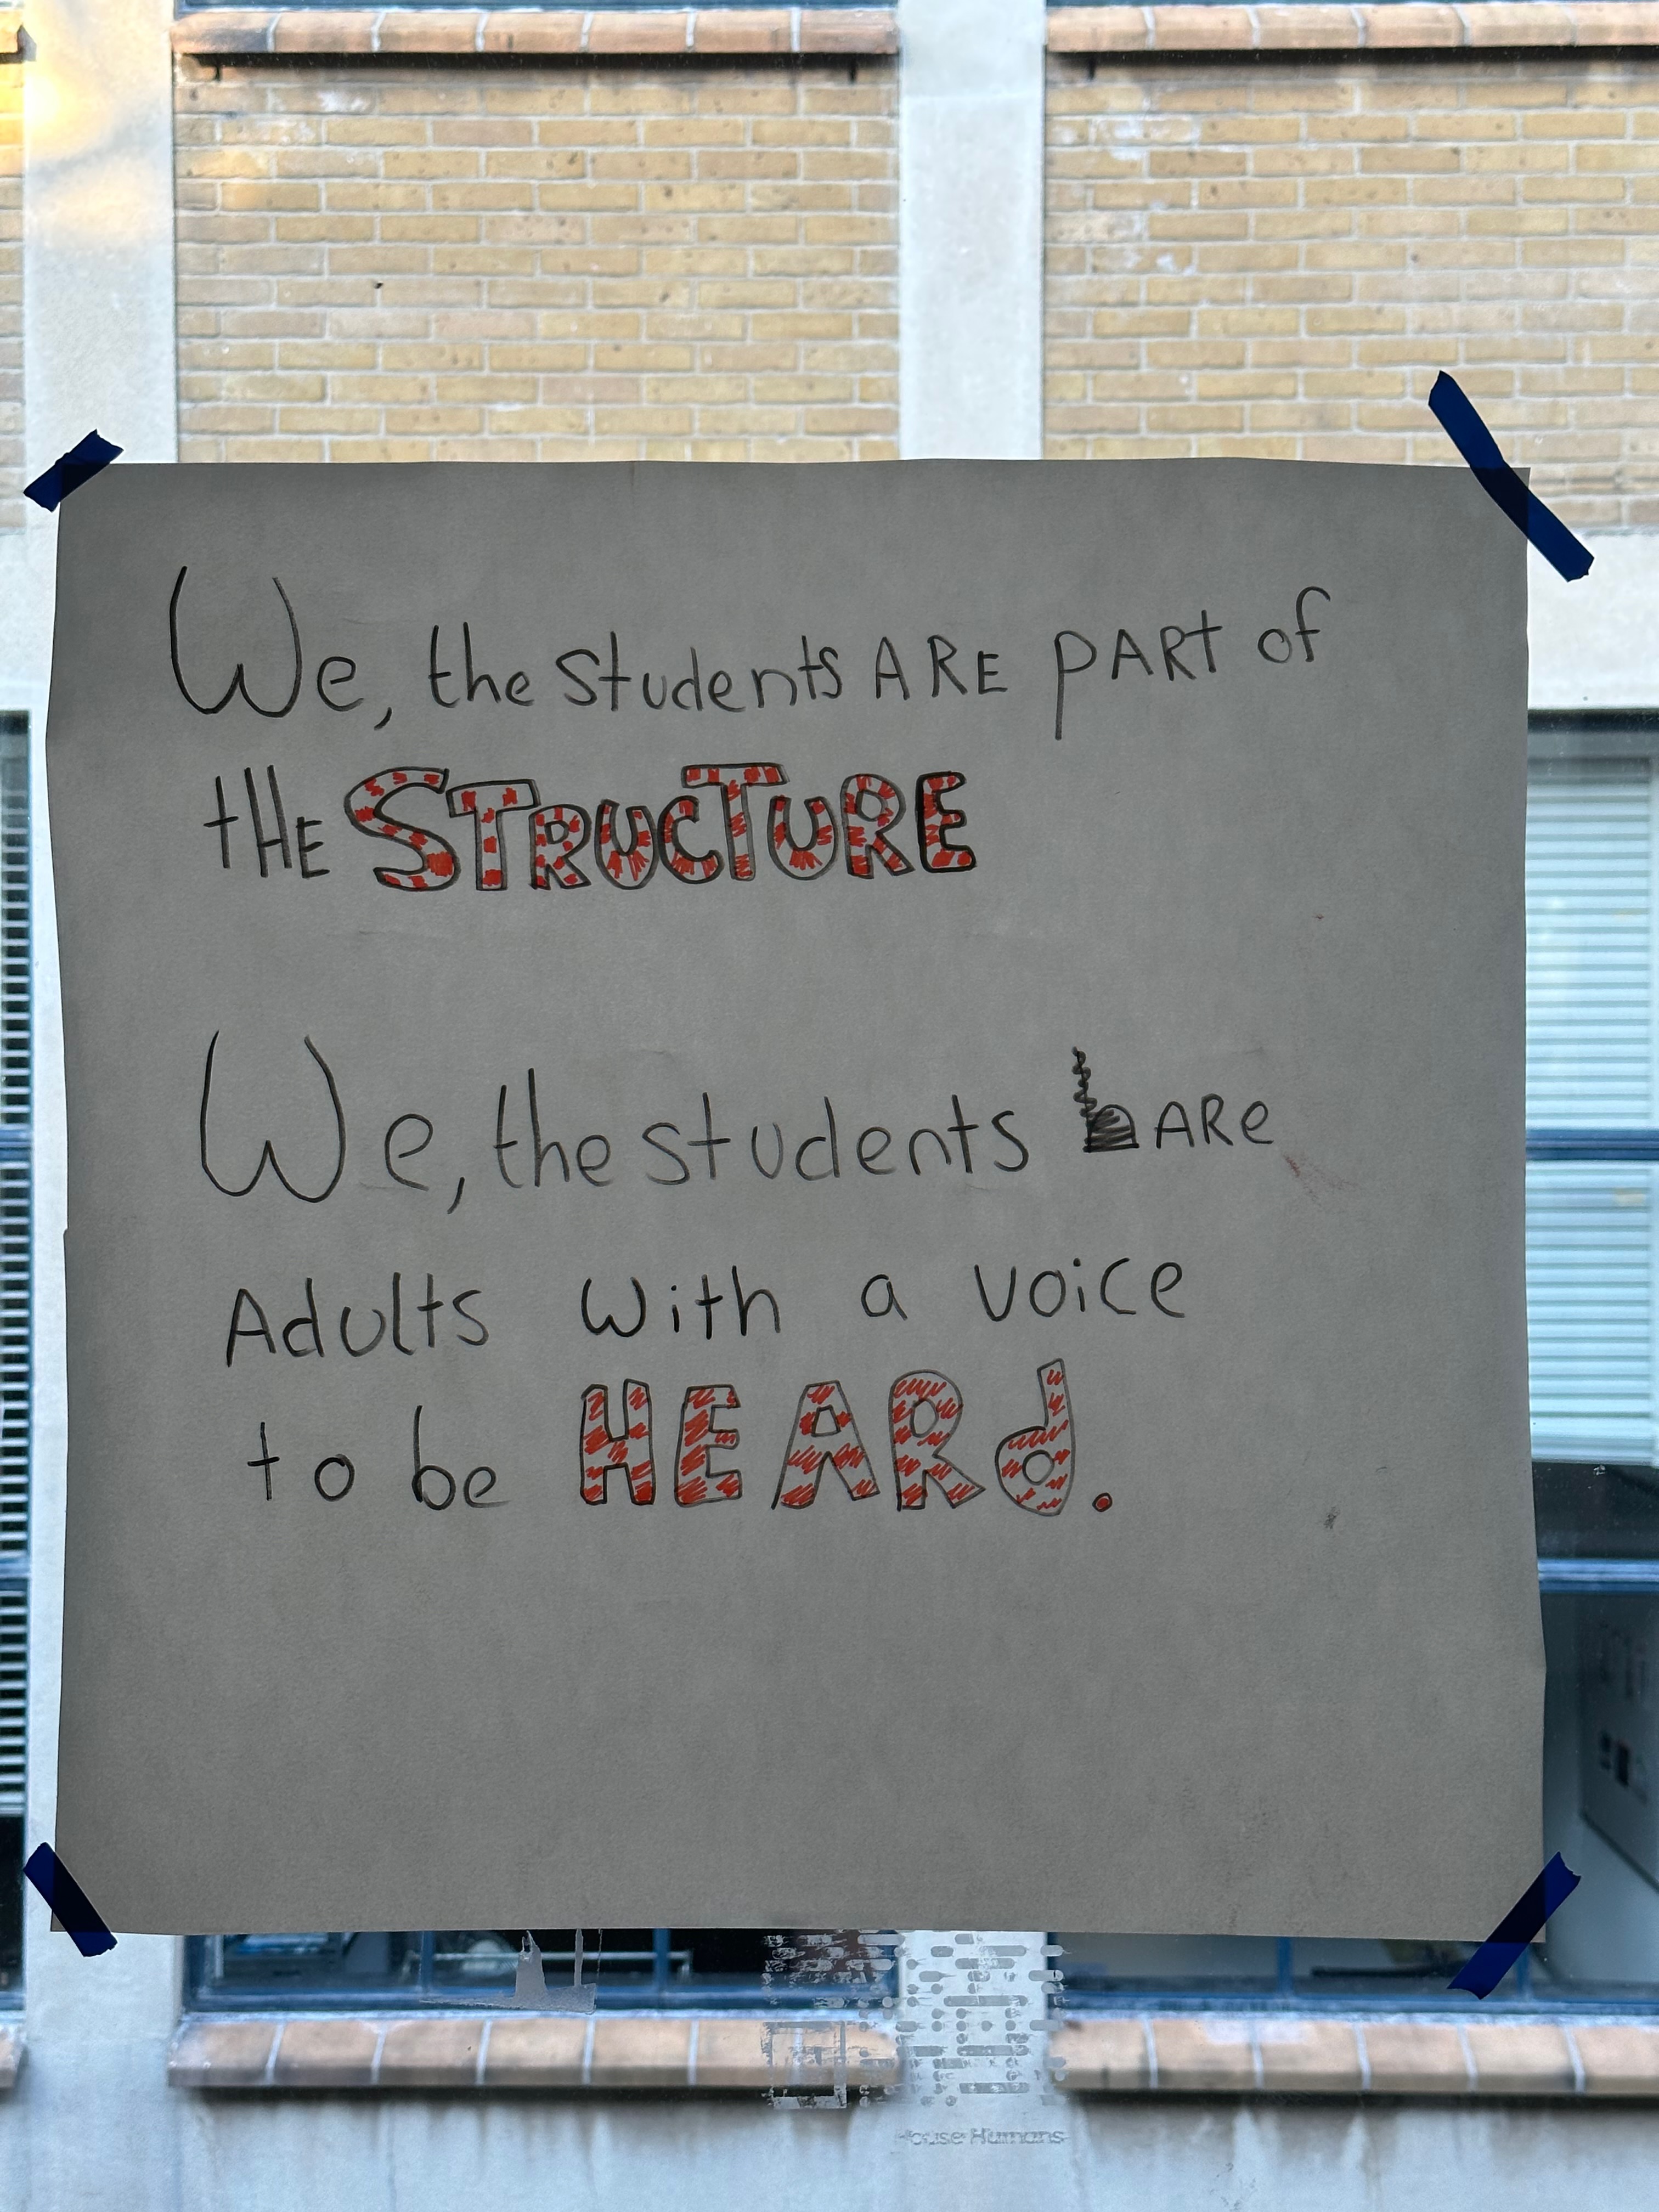 We, the students ARE PART of
tHE STRUCTURE
We, the students ARe
Adults with a voice
to be HEARd.
House Humans